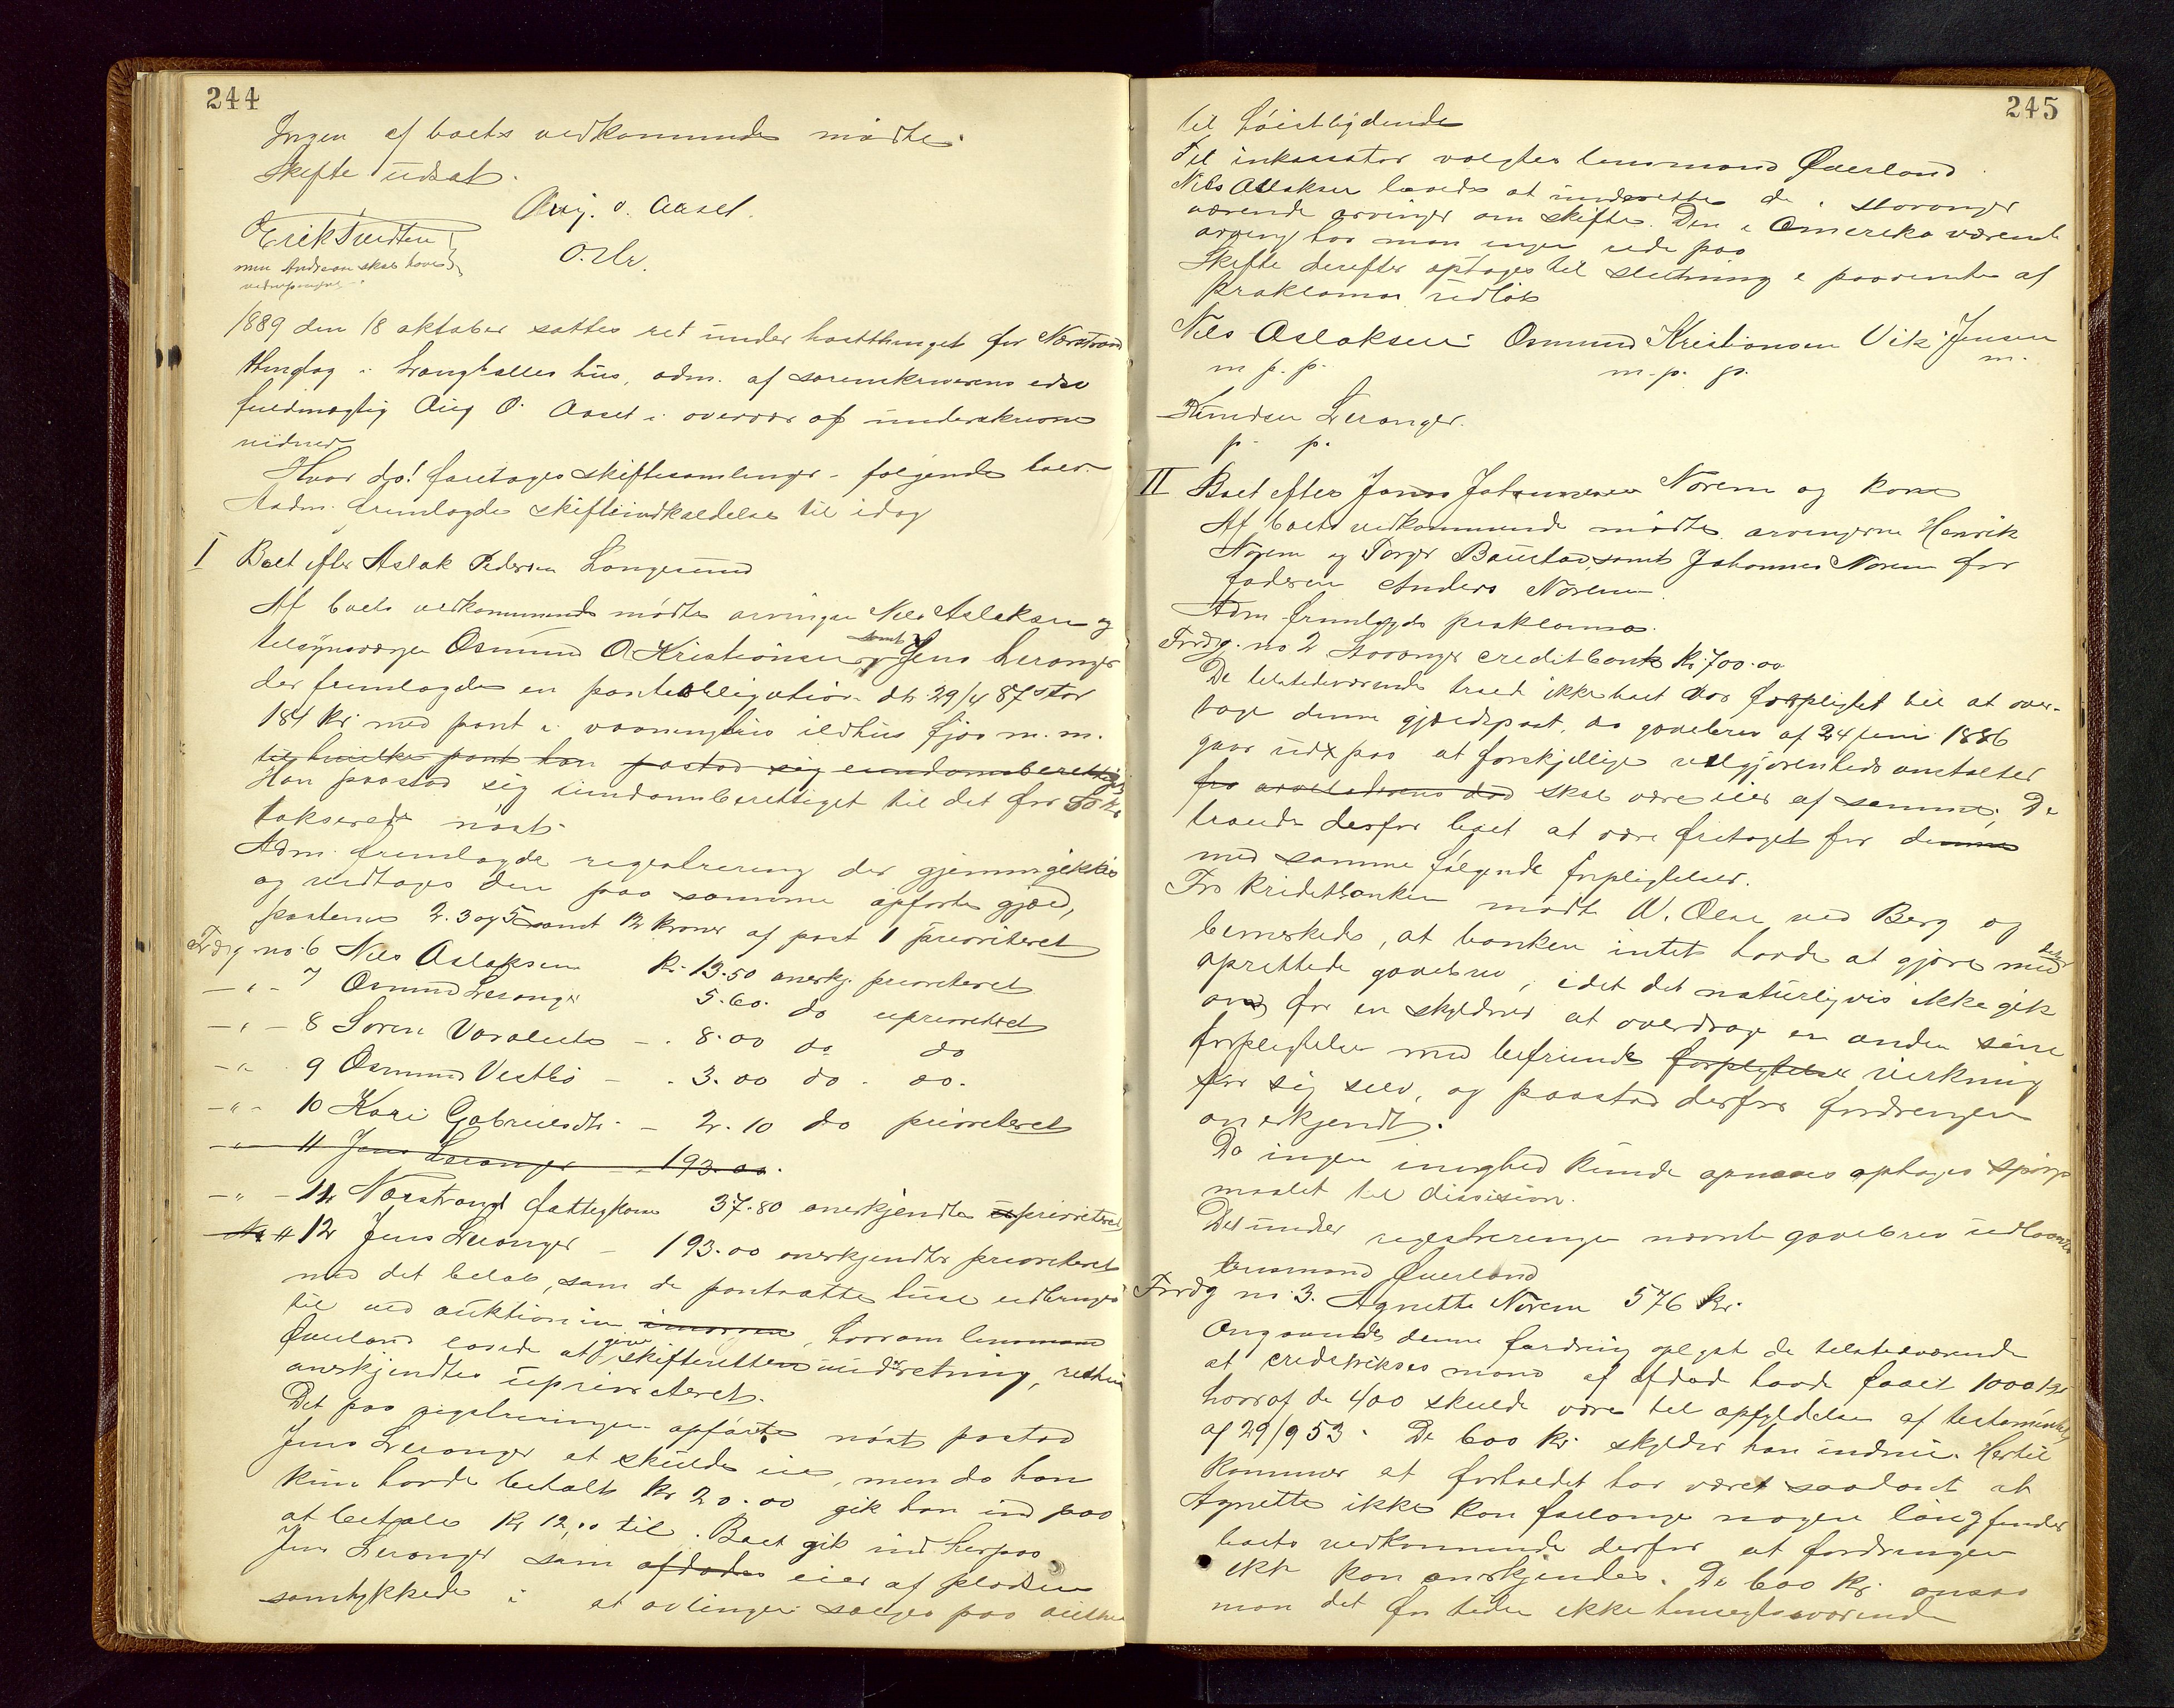 244
Ingen af boets vedkommende mødte.
Skifte udsat.
Aug. O. Aasel.
Erik Tvedten
O. Ur.
1889 den 18 oktober sattes ret under høstthinget for Nærstrand
thinglag i hus, adm. af sorenskriverens edsv
fuldmægtig Aug O. Aasel i overvær af underskrevne
vidner
Hvor da! foretoges skiftesamlinger i følgende boer.
Adm. fremlagde skifteindkaldelse til idag
I Boet efter Aslak Pedersen Longesund
Af boets vedkommende mødte arvingen Nils Aslaksen og
tilsynsværge Osmund O Kristiansen samt Jens Leranger
der fremlagde en panteobligation dt. 29/4 87 stor
184 kr med pant i vaaningshus ildhus fjøs m. m.
til hvilke pant han pastod sig eiendomsberettiget
Han paastod sig eiendomsberettiget til det for
takserede nøst
Adm. fremlagde registrering der gjennemgikkes
og vedtoges den paa samme opførte gjæld,
posterne 2. 3 og 5 samt 12 kroner af post 1 prioriteret
Frdg no 6 Nils Aslaksen Kr. 13.50 anerkj. prioriteret
- " - 7 Osmund Leranger 5.60 do uprioriteret
- " - 8 Soren - . 8.00 do do
- " - 9 Osmund Vestbø - . 3.00 do. do.
- " - 10 Kari Gabrielsdtr. - 2.10 do prioriteret
- " - 11 Jens Leranger - " 193.00.
- " - 11 Nærstrand fattigkom 37.80 anerkjendtes uprioriteret
No 12 Jens Leranger - 193.00 anerkjendtes prioriteret
med det beløb, som de pantsatte huse udbringes
til ved auktionen imorgen, hvorom lensmand
Qverland lovede at give skifteretten underretning, resten
anerkjendtes uprioriteret.
Det paa registreringen opførte nøst pastod
Jens Leranger at skulde eie, men da han
kun havde betalt Kr 20.00 gik han ind paa
at betale Kr 12,00 til. Boet gik ind herpaa
Jens Leranger som afdødes eier af pladsen
samtykkede i at avlingen sælges paa auktion
245
til høistbydende
Til inkassator valgtes lensmand Qverland
Nils Aslaksen lovede at underrette de i Stavanger
værende arvinger om skiftet. Den i Amerika værende
arving har man ingen rede paa
Skifte derefter optoges til slutning i paavente af
proklamas udløb
Nils Aslaksen Osmund Kristiansen Vik Jensen
m. p. p. m. p. p. m.
Knudsen Leranger.
p. p.
II Boet efter Jonas Johannesen Norem og kone
Af boets vedkommende mødte arvingerne Henrik
Norem og Torger Baustad, samt Johannes Norem for
faderen Anders Norem
Adm fremlagde proklama.
Frdg. no 2 Stavanger creditbank Kr. 700.00
De tilstedeværende troede ikke boet var forpligtet til at over-
tage denne gjældspost, da gavebrev af 24 juni 1886
gaar ud paa at forskjellige velgjørenheds anstalter
fra arveladerens død skal være eier af samme; De
troede derfor boet at være fritaget for denne
med samme følgende forpligtelser.
Fra Kreditbanken mødte W. Olsen ved Berg og
bemerkede, at banken intet havde at gjøre med det
oprettede gavebrev, idet det naturligvis ikke gik
an for en skyldner at overdrage en anden sine
forpligtelser med befriende forpligtelse virkning
for sig selv, og paastod derfor fordringen
anerkjendt.
Da ingen enighed kunde opnaaes optoges spørgs
maalet til decision.
Det under registreringen nævnte gavebrev udlaantes
lensmand Qverland
Frdg no 3. Agnette Norem 576 Kr.
Angaaende denne fordring oplyste de tilstedeværende
at creditricens mand af afdøde havde faaet 1000 kr
hvoraf de 400 skulde være til opfyldelse af testamentet
af 29/9 53. De 600 kr skylder han endnu. Hertil
kommer at forholdet har været saadant at
Agnette ikke kan forlange nogen løn, finder
boets vedkommende derfor at fordringen
ikke kan anerkjendes. De 600 kr ansaa
man det for tiden ikke hensigtssvarende